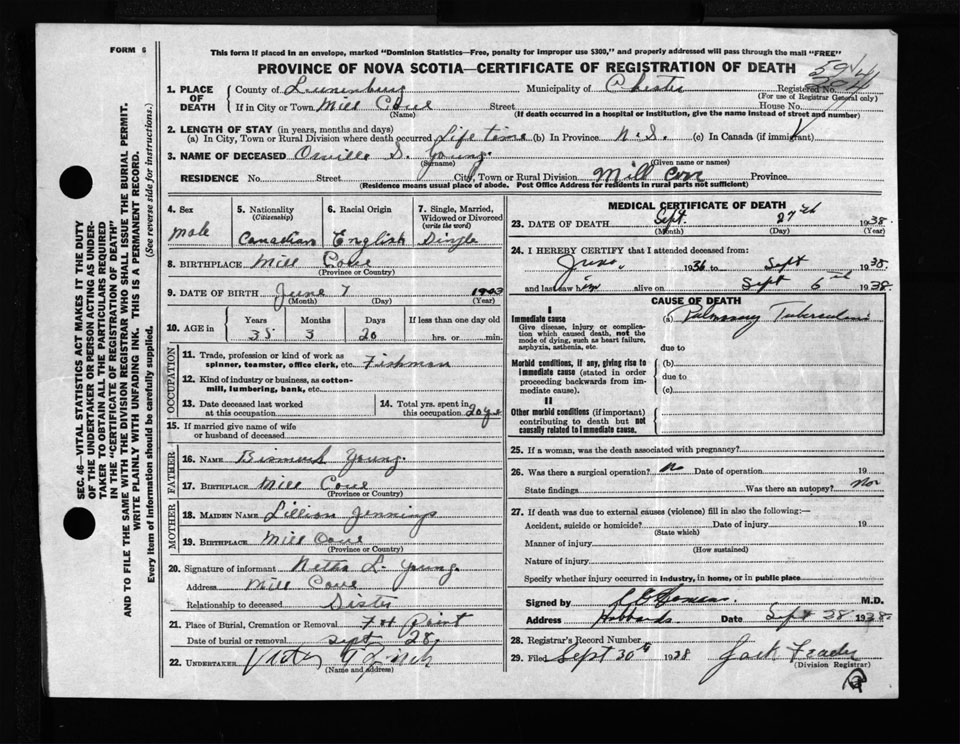 FORM 6
This form if placed in an envelope, marked "Dominion Statistics—Free, penalty for improper use $300," and properly addressed will pass through the mail "FREE"
PROVINCE OF NOVA SCOTIA—CERTIFICATE OF REGISTRATION OF DEATH
1. PLACE OF DEATH
County of Lunenburg Municipality of Chester Registered No.
(For use of Registrar General only)
If in City or Town Mill Cove Street House No.
(Name) (If death occurred in a hospital or institution, give the name instead of street and number)
2. LENGTH OF STAY (in years, months and days)
(a) In City, Town or Rural Division where death occurred Life time (b) In Province N.S. (c) In Canada (if immigrant)
3. NAME OF DECEASED Orville S. Young.
(Surname) (Given name or names)
RESIDENCE No. Street City, Town or Rural Division Mill Cove Province
(Residence means usual place of abode. Post Office Address for residents in rural parts not sufficient)
4. Sex
Male
5. Nationality
(Citizenship)
Canadian
6. Racial Origin
English
7. Single, Married, Widowed or Divorced
(write the word)
Single
8. BIRTHPLACE Mill Cove
(Province or Country)
9. DATE OF BIRTH June 7 1903
(Month) (Day) (Year)
10. AGE in
Years Months Days If less than one day old
35 3 20 hrs. or min.
OCCUPATION
11. Trade, profession or kind of work as spinner, teamster, office clerk, etc. Fishman
12. Kind of industry or business, as cotton-mill, lumbering, bank, etc.
13. Date deceased last worked at this occupation
14. Total yrs. spent in this occupation 20 yrs
15. If married give name of wife or husband of deceased
FATHER
16. NAME Bismark Young.
17. BIRTHPLACE Mill Cove
(Province or Country)
MOTHER
18. MAIDEN NAME Lillian Jennings
19. BIRTHPLACE Mill Cove
(Province or Country)
20. Signature of informant Netha L. Young.
Address Mill Cove
Relationship to deceased Sister
21. Place of Burial, Cremation or Removal Point
Date of burial or removal Sept 28,
22. UNDERTAKER
(Name and address)
MEDICAL CERTIFICATE OF DEATH
23. DATE OF DEATH Sept. 27th 1938.
(Month) (Day) (Year)
24. I HEREBY CERTIFY that I attended deceased from:
June, 1936 to Sept 1938.
and last saw him alive on Sept 6th 1938.
CAUSE OF DEATH
I
Immediate cause
Give disease, injury or complication which caused death, not the mode of dying, such as heart failure, asphyxia, asthenia, etc.
(a) Pulmonary Tuberculosis
due to
Morbid conditions, if any, giving rise to immediate cause (stated in order proceeding backwards from immediate cause).
(b)
due to
(c)
II
Other morbid conditions (if important) contributing to death but not causally related to immediate cause.
25. If a woman, was the death associated with pregnancy?
26. Was there a surgical operation? No Date of operation 19
State findings Was there an autopsy?
27. If death was due to external causes (violence) fill in also the following:—
Accident, suicide or homicide? Date of injury 19
(State which)
Manner of injury
(How sustained)
Nature of injury
Specify whether injury occurred in industry, in home, or in public place
Signed by M.D.
Address Hubbards Date Sept 28 1938.
28. Registrar's Record Number
29. Filed Sept 30th 1938 Jack
(Division Registrar)
2
SEC. 46—VITAL STATISTICS ACT MAKES IT THE DUTY
OF THE UNDERTAKER OR PERSON ACTING AS UNDER-
TAKER TO OBTAIN ALL THE PARTICULARS REQUIRED
IN THE "CERTIFICATE OF REGISTRATION OF DEATH"
AND TO FILE THE SAME WITH THE DIVISION REGISTRAR WHO SHALL ISSUE THE BURIAL PERMIT.
WRITE PLAINLY WITH UNFADING INK. THIS IS A PERMANENT RECORD.
Every item of information should be carefully supplied. (See reverse side for instructions.)